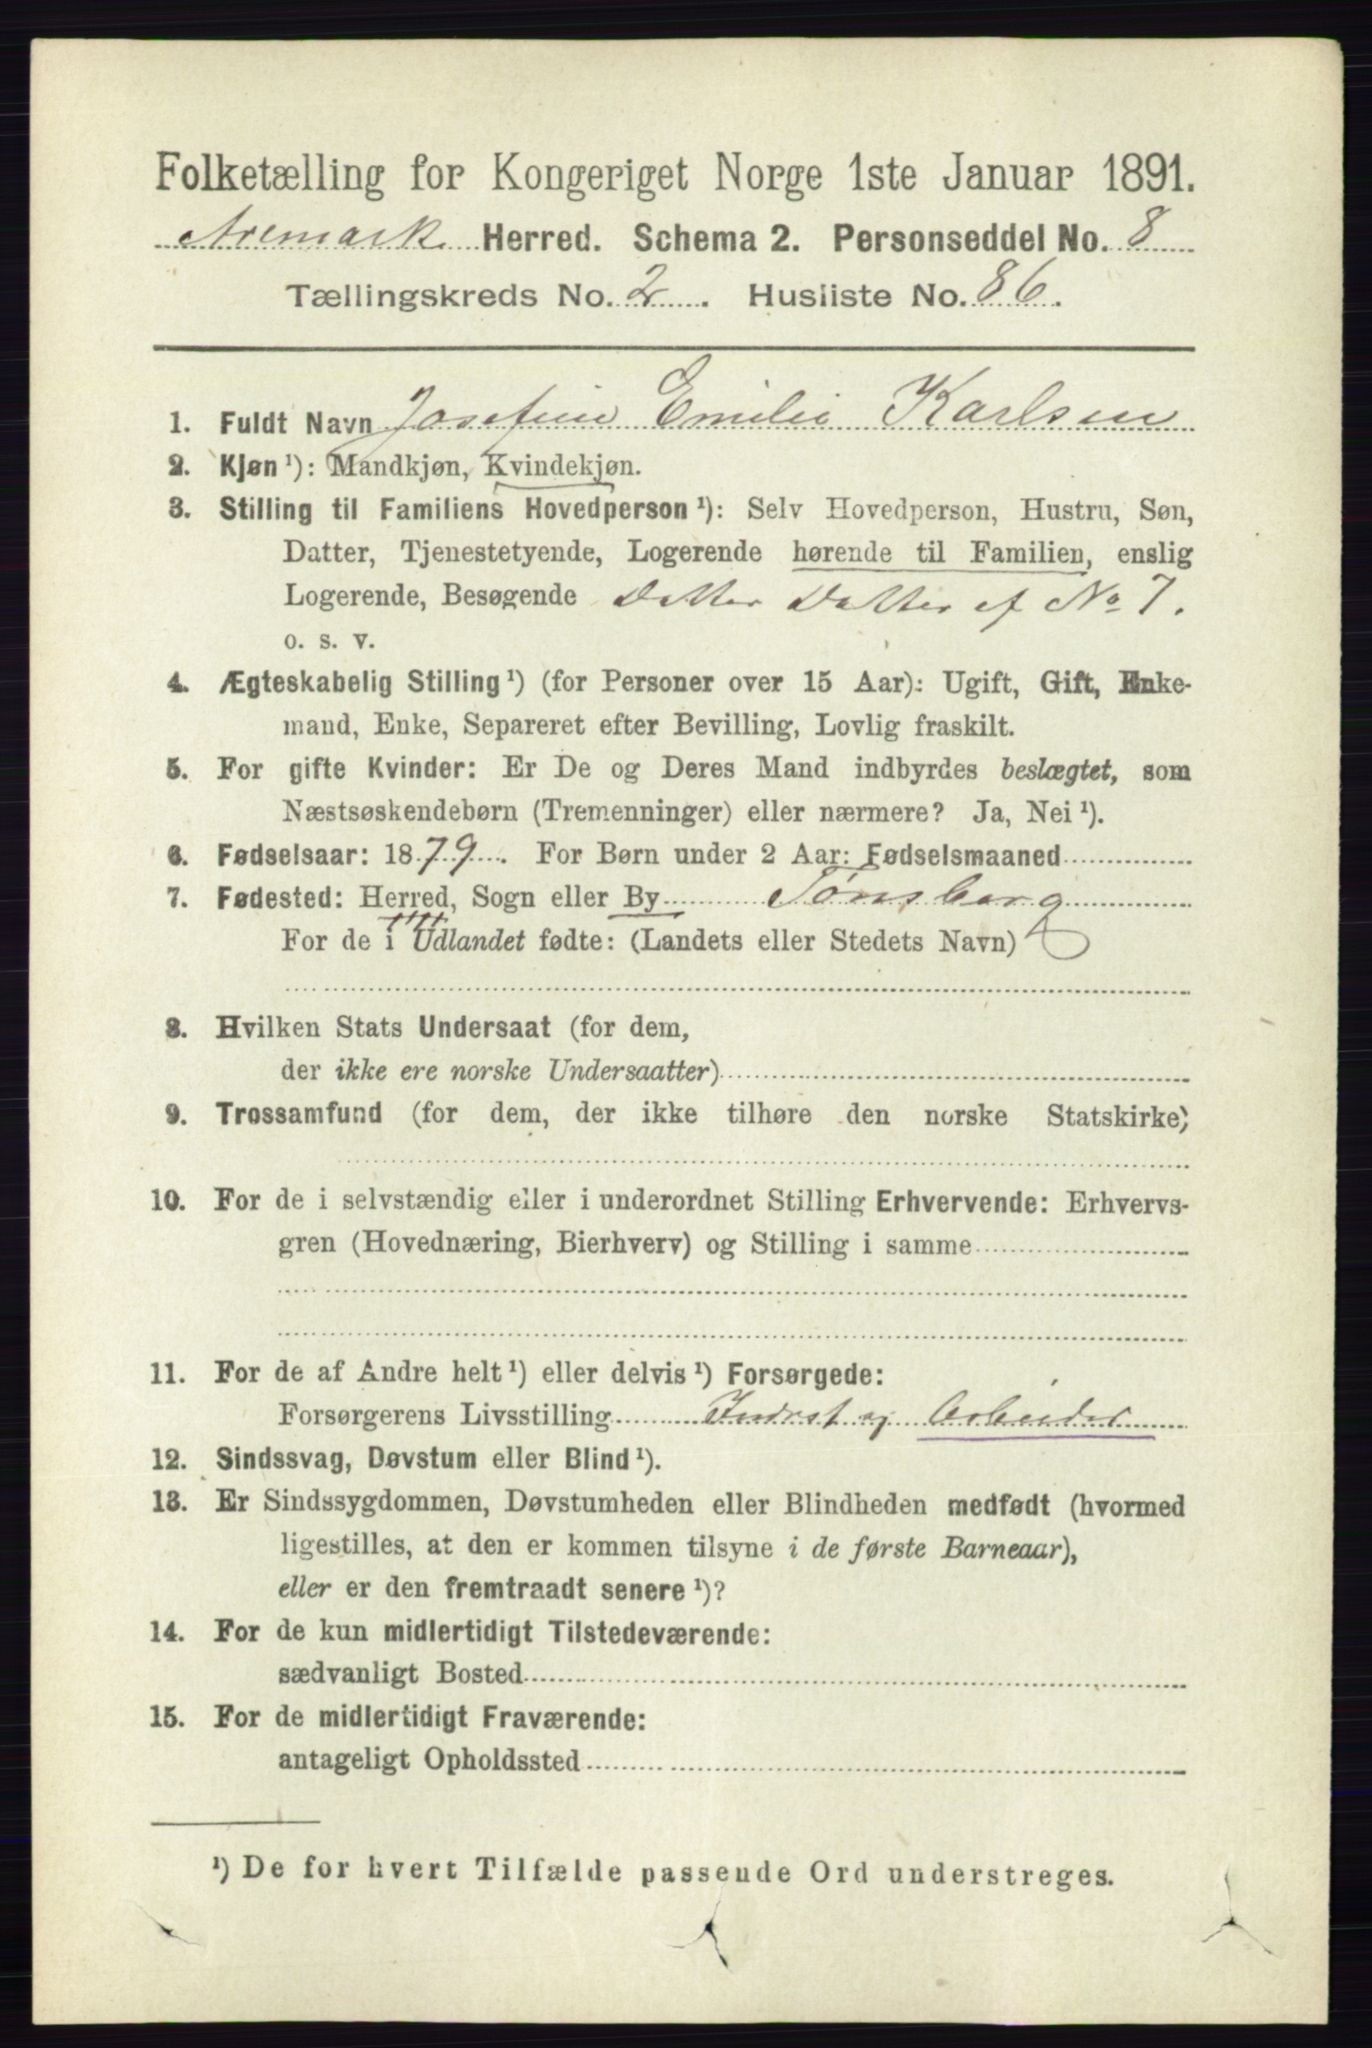 Folketælling for Kongeriget Norge 1ste Januar 1891.
Aremark Herred. Schema 2. Personseddel No. 8
Tællingskreds No. 2. Husliste No. 86.
1. Fuldt Navn Josefine Emilie Karlsen
2. Kjøn ¹): Mandkjøn, Kvindekjøn.
3. Stilling til Familiens Hovedperson ¹): Selv Hovedperson, Hustru, Søn,
Datter, Tjenestetyende, Logerende hørende til Familien, enslig
Logerende, Besøgende Datter Datter af No 7.
o. s. v.
4. Ægteskabelig Stilling ¹) (for Personer over 15 Aar): Ugift, Gift, Enke-
mand, Enke, Separeret efter Bevilling, Lovlig fraskilt.
5. For gifte Kvinder: Er De og Deres Mand indbyrdes beslægtet, som
Næstsøskendebørn (Tremenninger) eller nærmere? Ja, Nei ¹).
6. Fødselsaar: 1879. For Børn under 2 Aar: Fødselsmaaned
7. Fødested: Herred, Sogn eller By Tønsberg
For de i Udlandet fødte: (Landets eller Stedets Navn)
8. Hvilken Stats Undersaat (for dem,
der ikke ere norske Undersaatter)
9. Trossamfund (for dem, der ikke tilhøre den norske Statskirke)
10. For de i selvstændig eller i underordnet Stilling Erhvervende: Erhvervs-
gren (Hovednæring, Bierhverv) og Stilling i samme
11. For de af Andre helt ¹) eller delvis ¹) Forsørgede:
Forsørgerens Livsstilling Inderst og Arbeider
12. Sindssvag, Døvstum eller Blind ¹).
13. Er Sindssygdommen, Døvstumheden eller Blindheden medfødt (hvormed
ligestilles, at den er kommen tilsyne i de første Barneaar),
eller er den fremtraadt senere ¹)?
14. For de kun midlertidigt Tilstedeværende:
sædvanligt Bosted
15. For de midlertidigt Fraværende:
antageligt Opholdssted
¹) De for hvert Tilfælde passende Ord understreges.